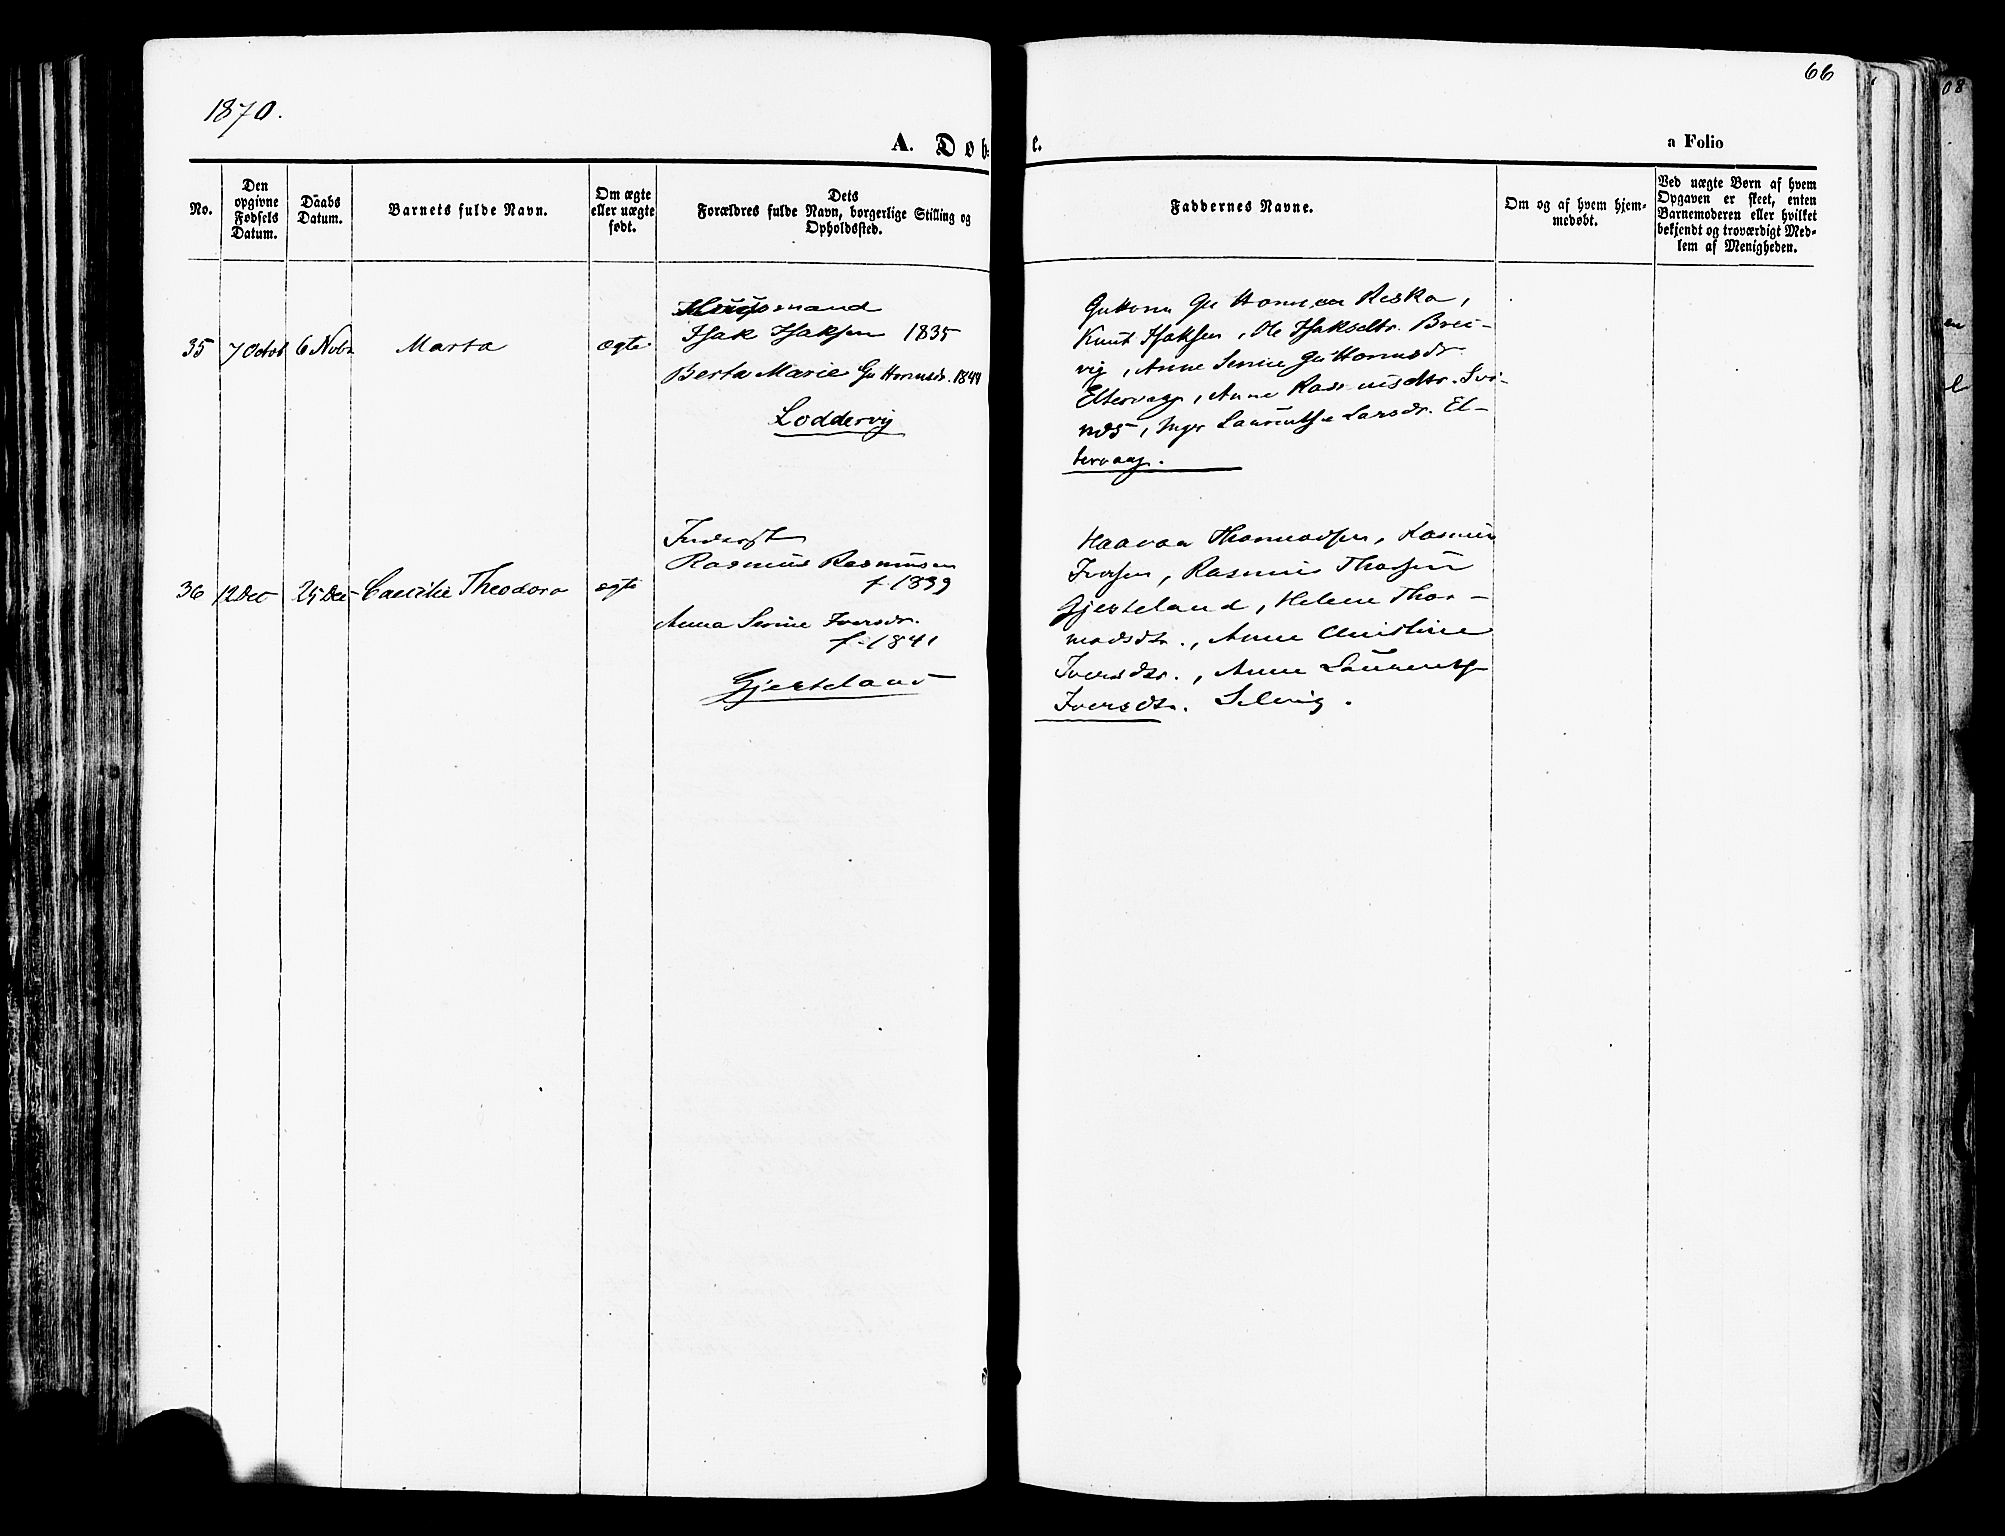 1870.
66
A. Døb
e.
a Folio
No.
Den
opgivne
Fødsels
Datum.
Daabs
Datum.
Barnets fulde Navn.
Om ægte
eller uægte
født.
Dets
Forældres fulde Navn, borgerlige Stilling og
Opholdssted.
Faddernes Navne.
Om og af hvem hjem-
medøbt.
Ved uægte Børn af hvem
Opgaven er skeet, enten
Barnemoderen eller hvilket
bekjendt og troværdigt Med-
lem af Menigheden.
35 7 Octob 6 Novbr Marta ægte
Huusmand
Isak Isaksen 1835
Berta Marie Guttormsdr. 1844
Loddervig
Guttorm Guttormsen Reska,
Knut Isaksen, Ole Isaksdtr. Brei-
vig, Anne Serine Guttormsdr.
Eltervaag, Anne Rasmusdtr.
Inger Laurentse Larsdr. El-
tervaag.
36 12 Dec 25 Dec Caecilie Theodora ægte
Inderst
Rasmus Rasmusen
f. 1839
Anna Serine Iversdr.
f. 1841
Gjesteland
Haavar Thormodsen, Rasmus
Iversen, Rasmus Thorsen
Gjesteland, Helene Thor-
modsdtr., Anne Christine
Iversdtr., Anne Laurentse
Iversdtr. Selvig.
08